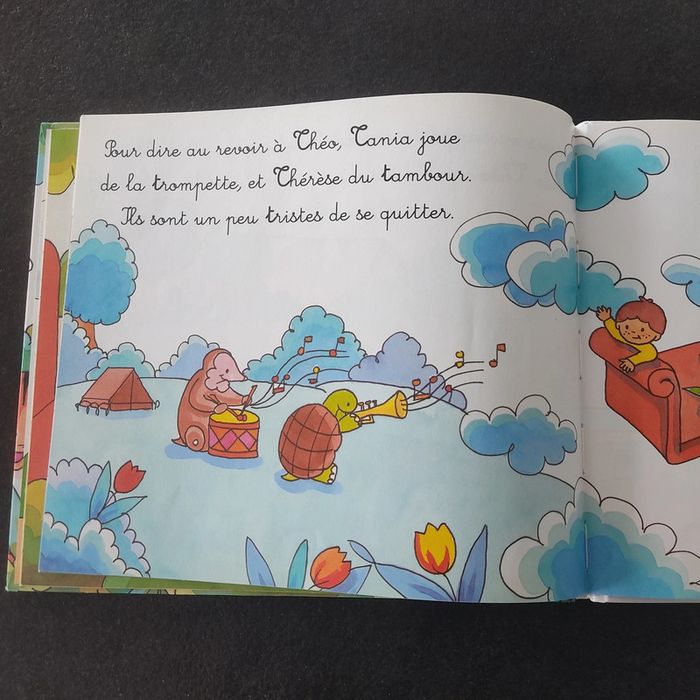 Pour dire au revoir à Théo, Tania joue
de la trompette, et Thérèse du tambour.
Ils sont un peu tristes de se quitter.